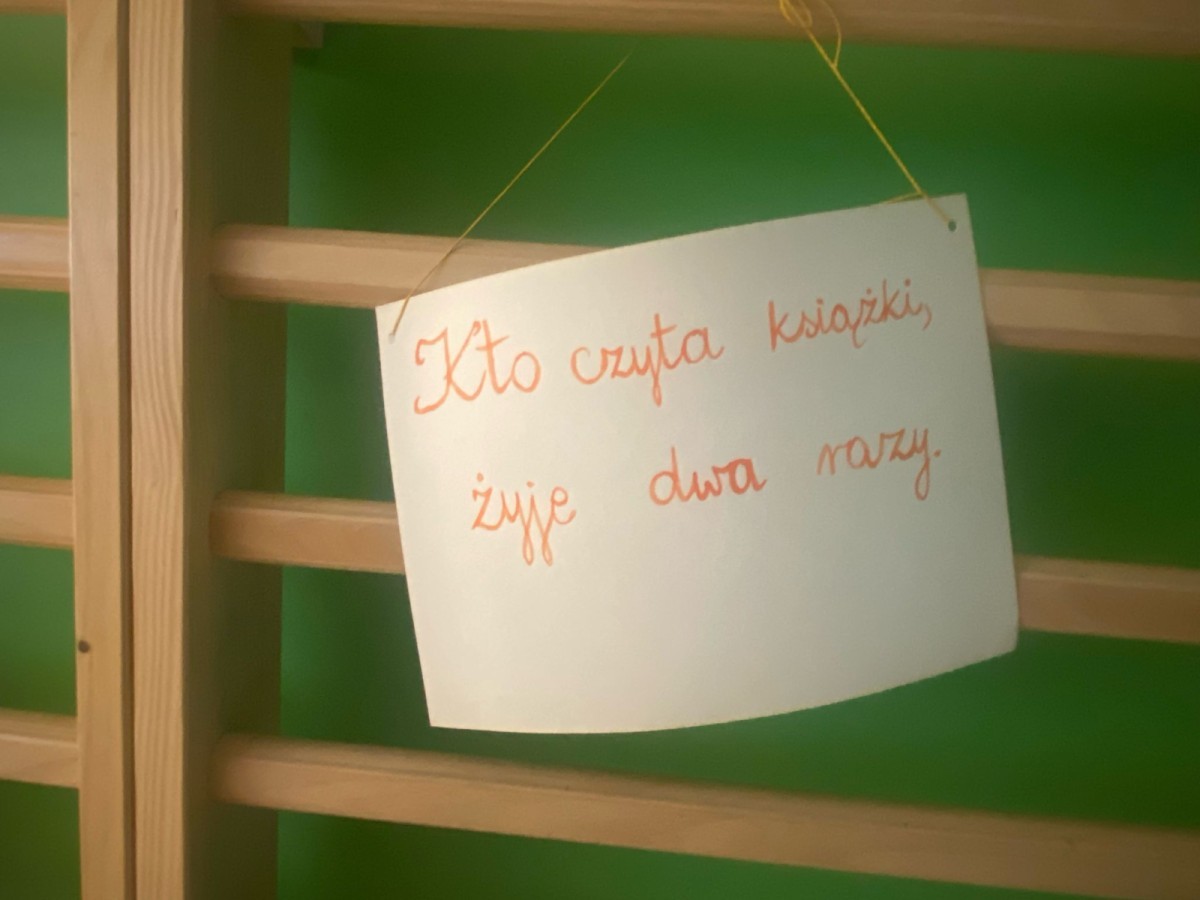 Kto czyta książki,
żyje dwa razy.